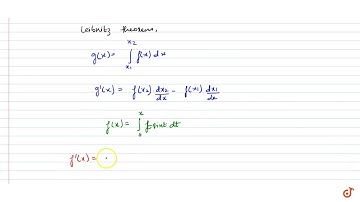 Leibnitz theorem,
g(x) = ∫_{x1}^{x2} f(x) dx
g'(x) = f(x2) dx2/dx - f(x1) dx1/dx
f(x) = ∫_{0}^{x} t sint dt
f'(x) =